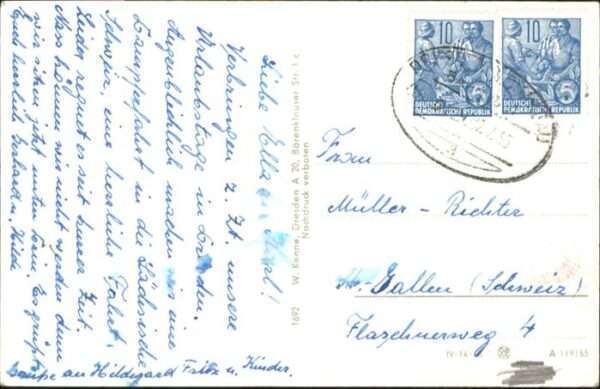 Liebe Ella
Verbringen z. Zt. unsere
Urlaubstage in Dresden.
Augenblicklich machen wir eine
Dampferfahrt in die Sächsische
Schweiz, eine herrliche Fahrt.
Leider regnet es seit kurzer Zeit.
Nass können wir nicht werden denn
wir sitzen ja
Euch herzlich Gerhard u. Hilde
an Hildegard Fritz u. Kinder.
1692 W. Kenne, Dresden A 20, Barenklauser Str. 1 c
Nachdruck verboten
10
DEUTSCHE
DEMOKRATISCHE REPUBLIK
5
10
DEUTSCHE
DEMOKRATISCHE REPUBLIK
5
Frau
Müller-Richter
St. Gallen (Schweiz)
Flaschnerweg 4
IV-14-
A 119/55